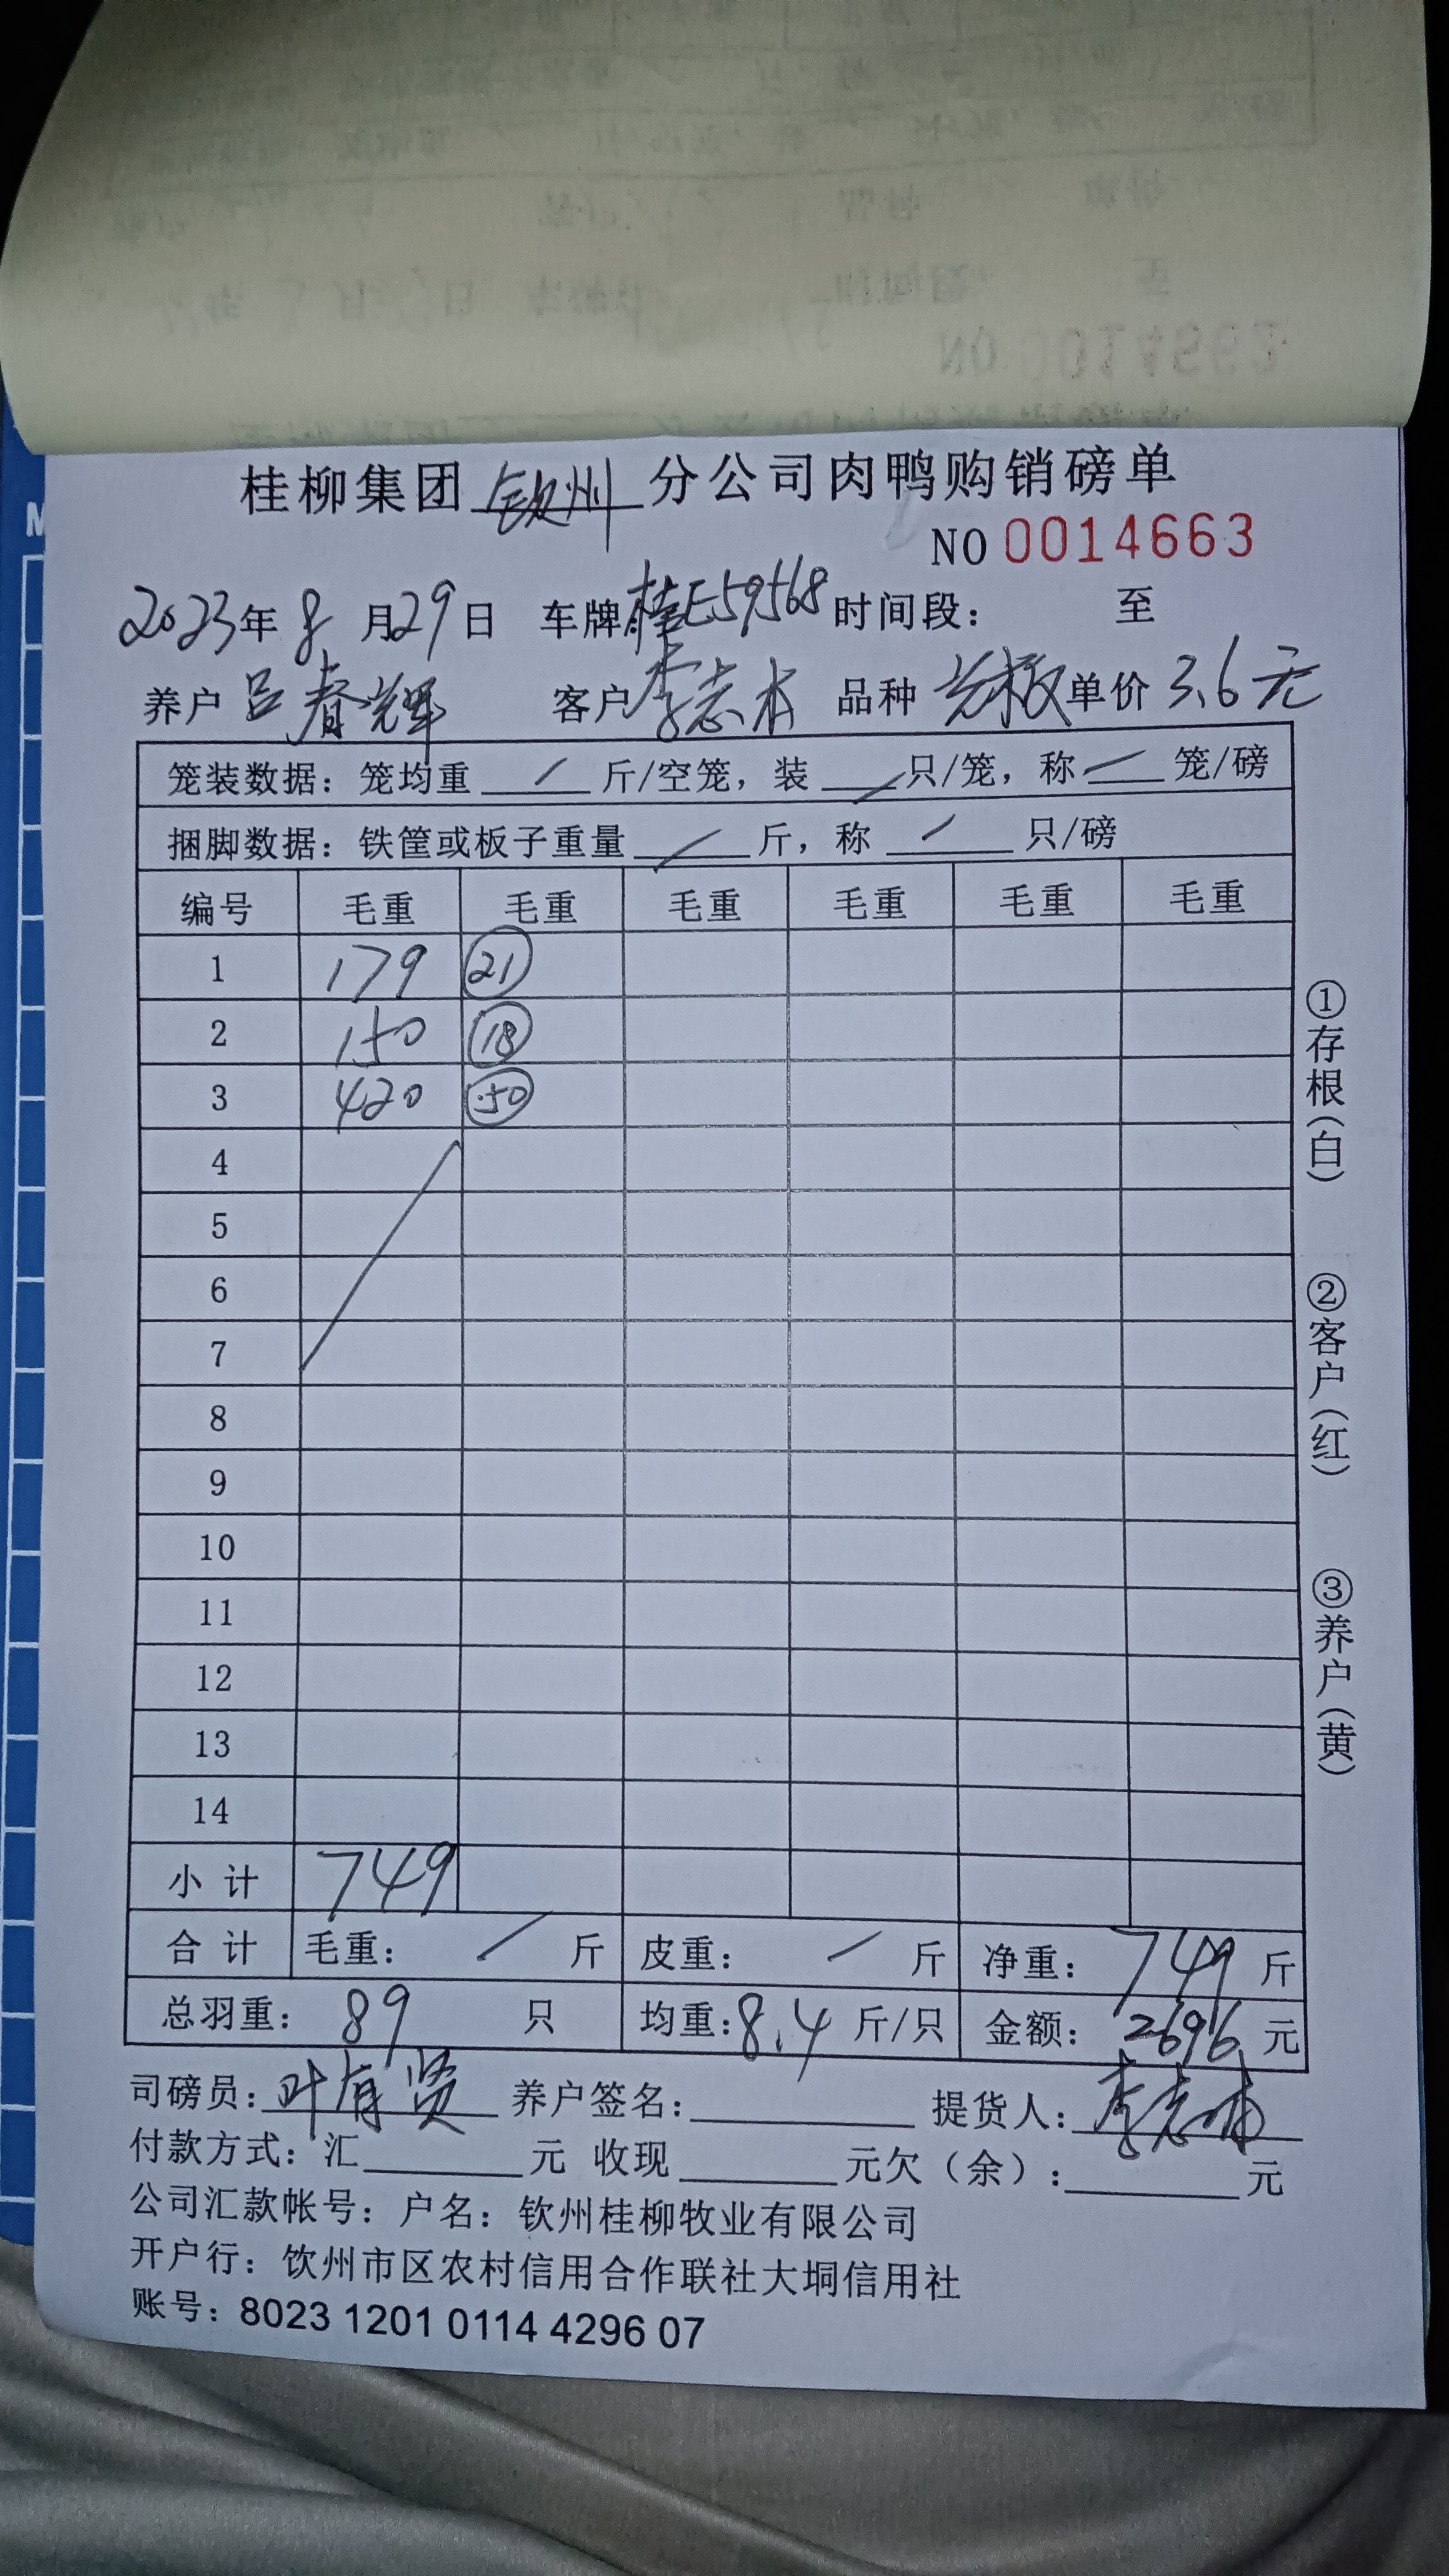 桂柳集团 钦州 分公司肉鸭购销磅单
NO 0014663
2023年 8 月 29 日 车牌:桂E59568 时间段: 至
养户 吕春辉 客户 李志本 品种 单价 3.6元
笼装数据: 笼均重 / 斤/空笼, 装 / 只/笼, 称 / 笼/磅
捆脚数据: 铁筐或板子重量 / 斤, 称 / 只/磅
编号 毛重 毛重 毛重 毛重 毛重 毛重
1 179 21
2 150 18
3 420 50
4
5
6
7
8
9
10
11
12
13
14
小计 749
合计 毛重: / 斤 皮重: / 斤 净重: 749 斤
总羽重: 89 只 均重: 8.4 斤/只 金额: 2696 元
司磅员: 叶有贤 养户签名: 提货人: 李志本
付款方式: 汇 元 收现 元欠(余): 元
公司汇款帐号: 户名: 钦州桂柳牧业有限公司
开户行: 钦州市区农村信用合作联社大垌信用社
账号: 8023 1201 0114 4296 07
①存根(白)
②客户(红)
③养户(黄)